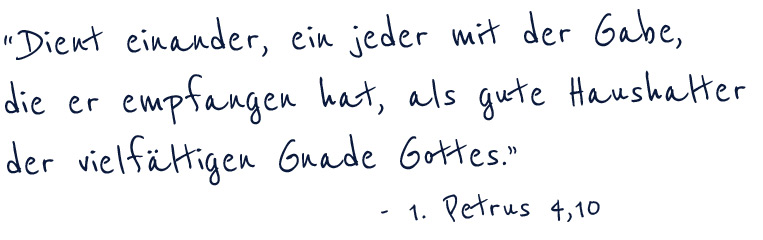 "Dient einander, ein jeder mit der Gabe,
die er empfangen hat, als gute Haushalter
der vielfältigen Gnade Gottes."
- 1. Petrus 4,10